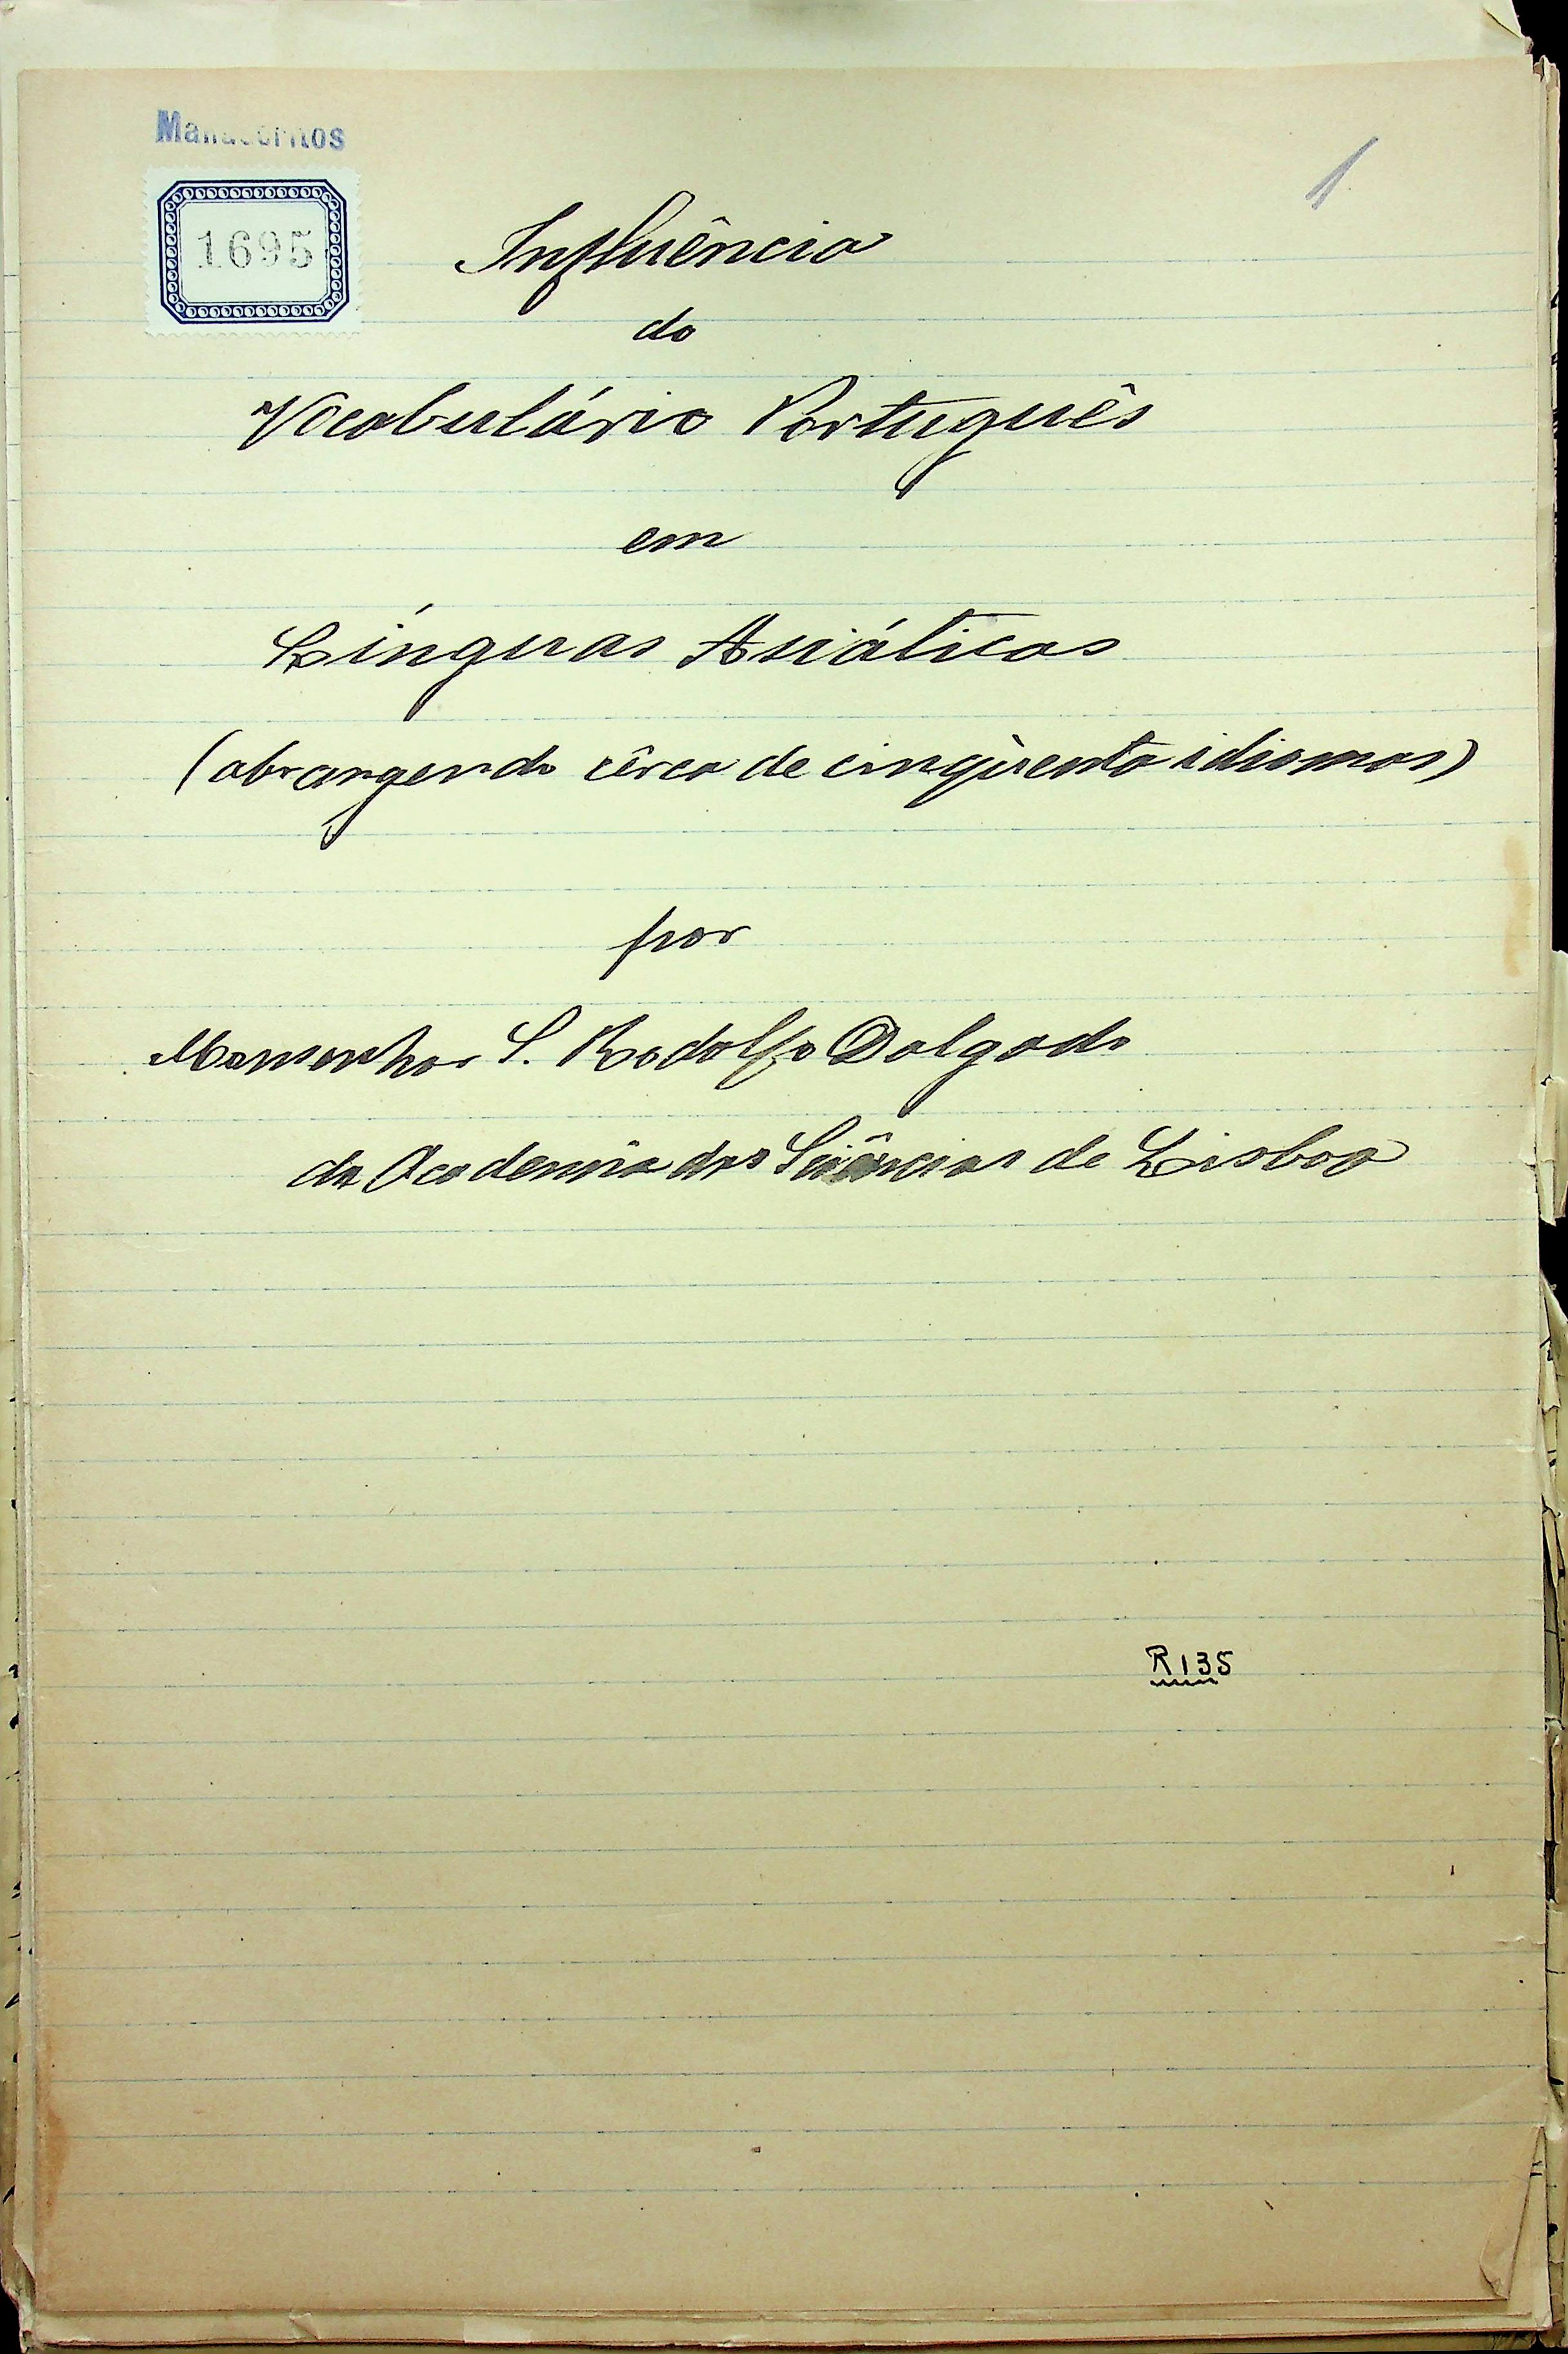 Manuscritos
1
1695
Influência
do
Vocabulário Português
em
Línguas Asiáticas
(abrangendo cêrca de cinqùenta idiomas)
por
Monsenhor S. Rodolfo Dalgado
da Academia das Sciências de Lisboa
R135